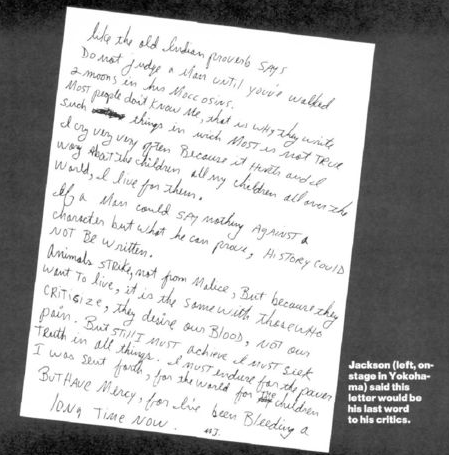 like the old Indian proverb SAYS
Do not judge a Man until you've walked
2 moons in his Moccosins.
MOST people don't know me, that is WHY they write
such things in wich MOST is not TRUE
I cry very very often Because it Hurts and I
worry About the children all my children all over the
World, I live for them.
If a Man could SAY nothing AGAINST a
character but what he can prove, HISTORY COULD
NOT BE Written.
Animals STRIKE, not from Malice, But because they
want To live, it is the same with those WHO
CRITISIZE, they desire our BLOOD, NOT our
pain. But STILL I MUST achieve I MUST seek
TRUTH in all things. I MUST endure for the power
I was sent forth, for the world for the children
BUT HAVE Mercy, for I've been Bleeding a
long Time NOW. MJ.
Jackson (left, on-
stage in Yokoha-
ma) said this
letter would be
his last word
to his critics.